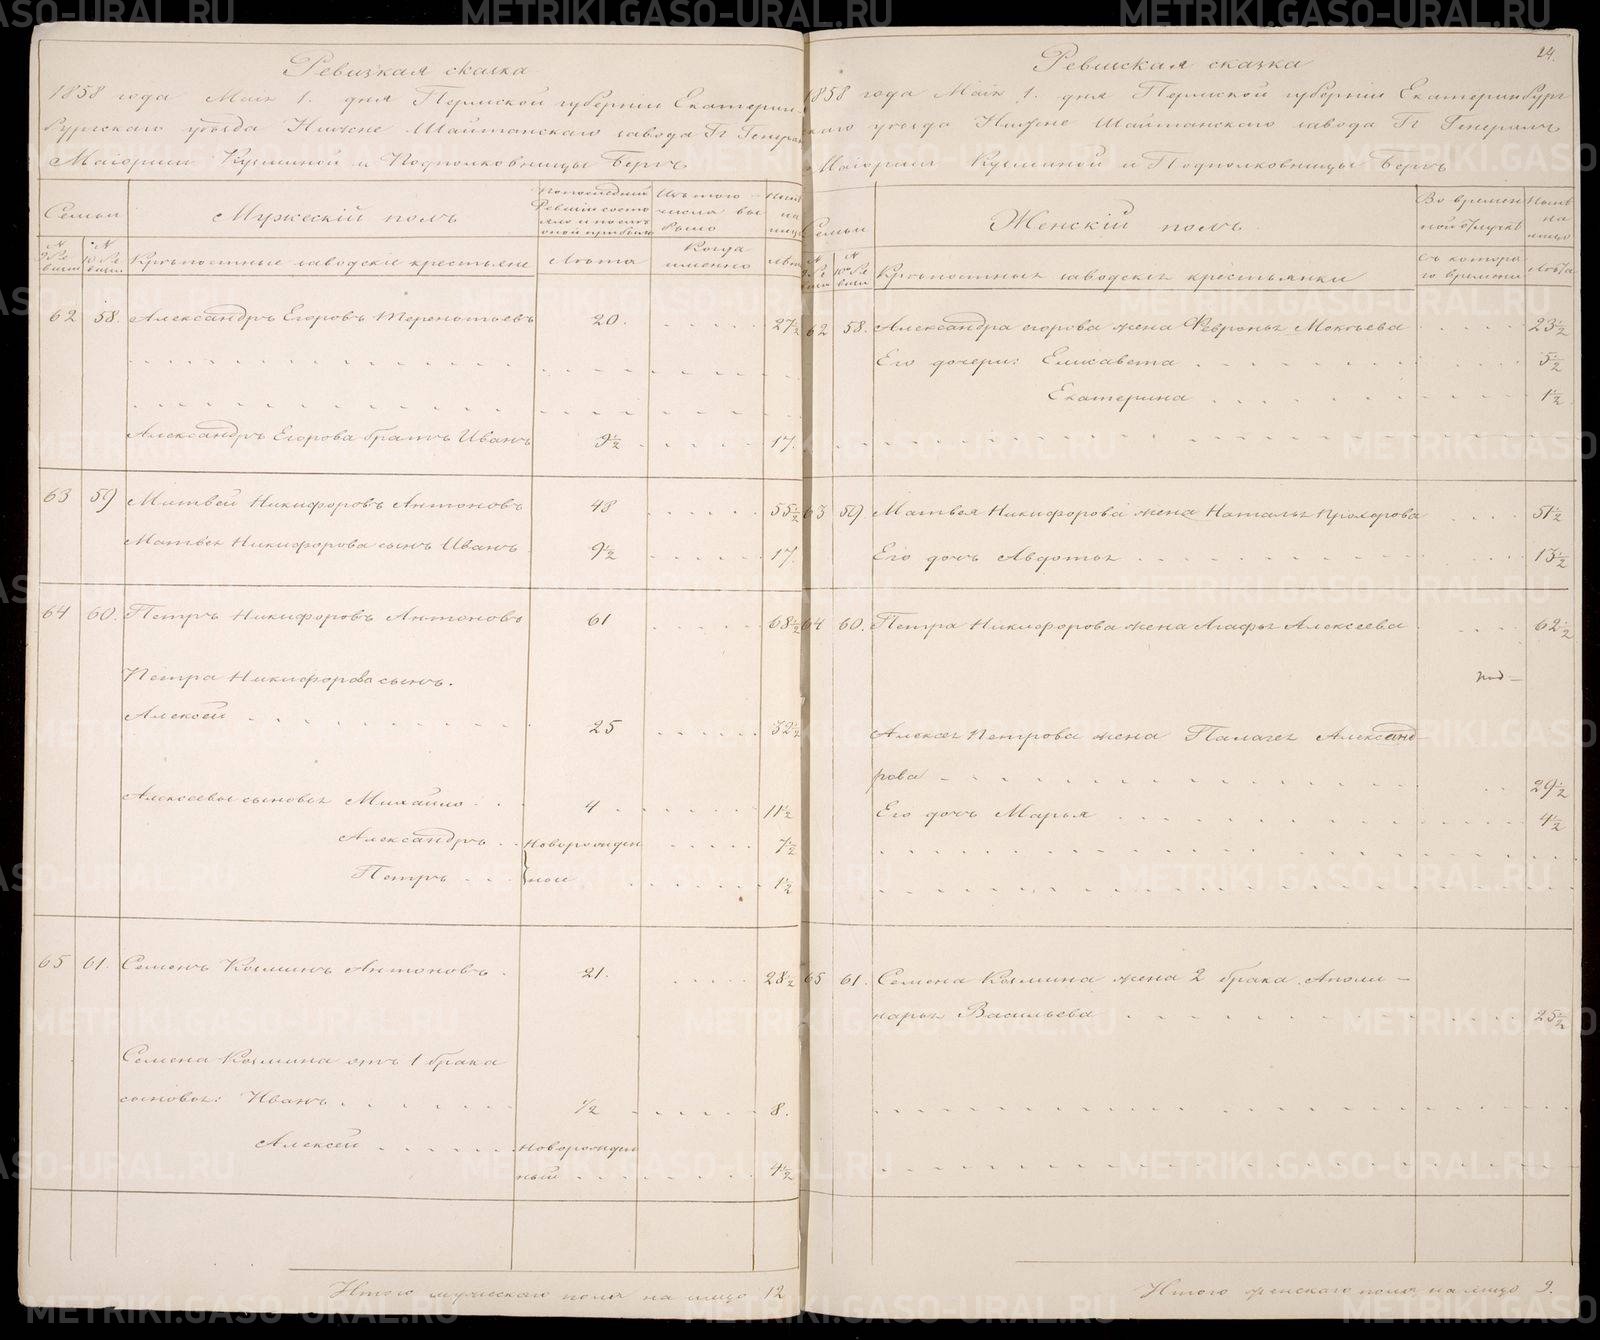 Ревизкая сказка
1858 года Маія 1. дня Пермской губерніи Екатерин-
бургскаго уѣзда Нижне Шайтанскаго завода Гг Генералъ
Маіорши Кузминой и Подполковницы Бергъ
Семьи
Мужескій полъ
По последней Ревизіи состояло и после оной прибыло
Изъ того числа выбыло
Нынѣ на лицо
N 9 Ревизіи
N 10 Ревизіи
Крѣпостные заводскіе крестьяне
Лѣта
Когда именно
Лѣта
62 58. Александръ Егоровъ Терентьевъ 20. 27½
Александръ Егорова братъ Иванъ 9½ 17.
63 59 Матвей Никифоровъ Антоновъ 48 55½
Матвѣя Никифорова сынъ Иванъ 9½ 17.
64 60. Петръ Никифоровъ Антоновъ 61 68½
Петра Никифорова сынъ.
Алексей 25 32½
Алексеевы сыновья Михайло 4 11½
Александръ Новорожден 7½
Петръ ные 1½
65 61. Семенъ Козминъ Антоновъ. 21. 28½
Семена Козмина отъ 1 брака
сыновья: Иванъ ½ 8.
Алексей Новорожден
ный 4½
Итого мужескаго пола на лицо 12
24.
Ревизская сказка
1858 года Маія 1. дня Пермской губерніи Екатеринбург
скаго уѣзда Нижне Шайтанскаго завода Гг Генералъ
Маіорши Кузминой и Подполковницы Бергъ
Семьи
Женскій полъ
Во временной отлучкѣ
Нынѣ на лицо
N 9 Ревизіи
N 10 Ревизіи
Крѣпостныя заводскія крестьянки
Съ котораго времени
Лѣта
62 58. Александра егорова жена Февронья Мокѣева 23½
Его дочери: Елисавета 5½
Екатерина 1½
63 59 Матвея Никифорова жена Наталья Прохорова 51½
Его дочь Авдотья 13½
64 60. Петра Никифорова жена Агафья Алексеева 62½
Алексея Петрова жена Палагея Александ
рова 29½
Его дочь Марья 4½
65 61. Семена Козмина жена 2 брака. Аполи-
нарья Васильева 25½
Итого женскаго пола на лицо 9.
METRIKI.GASO-URAL.RU